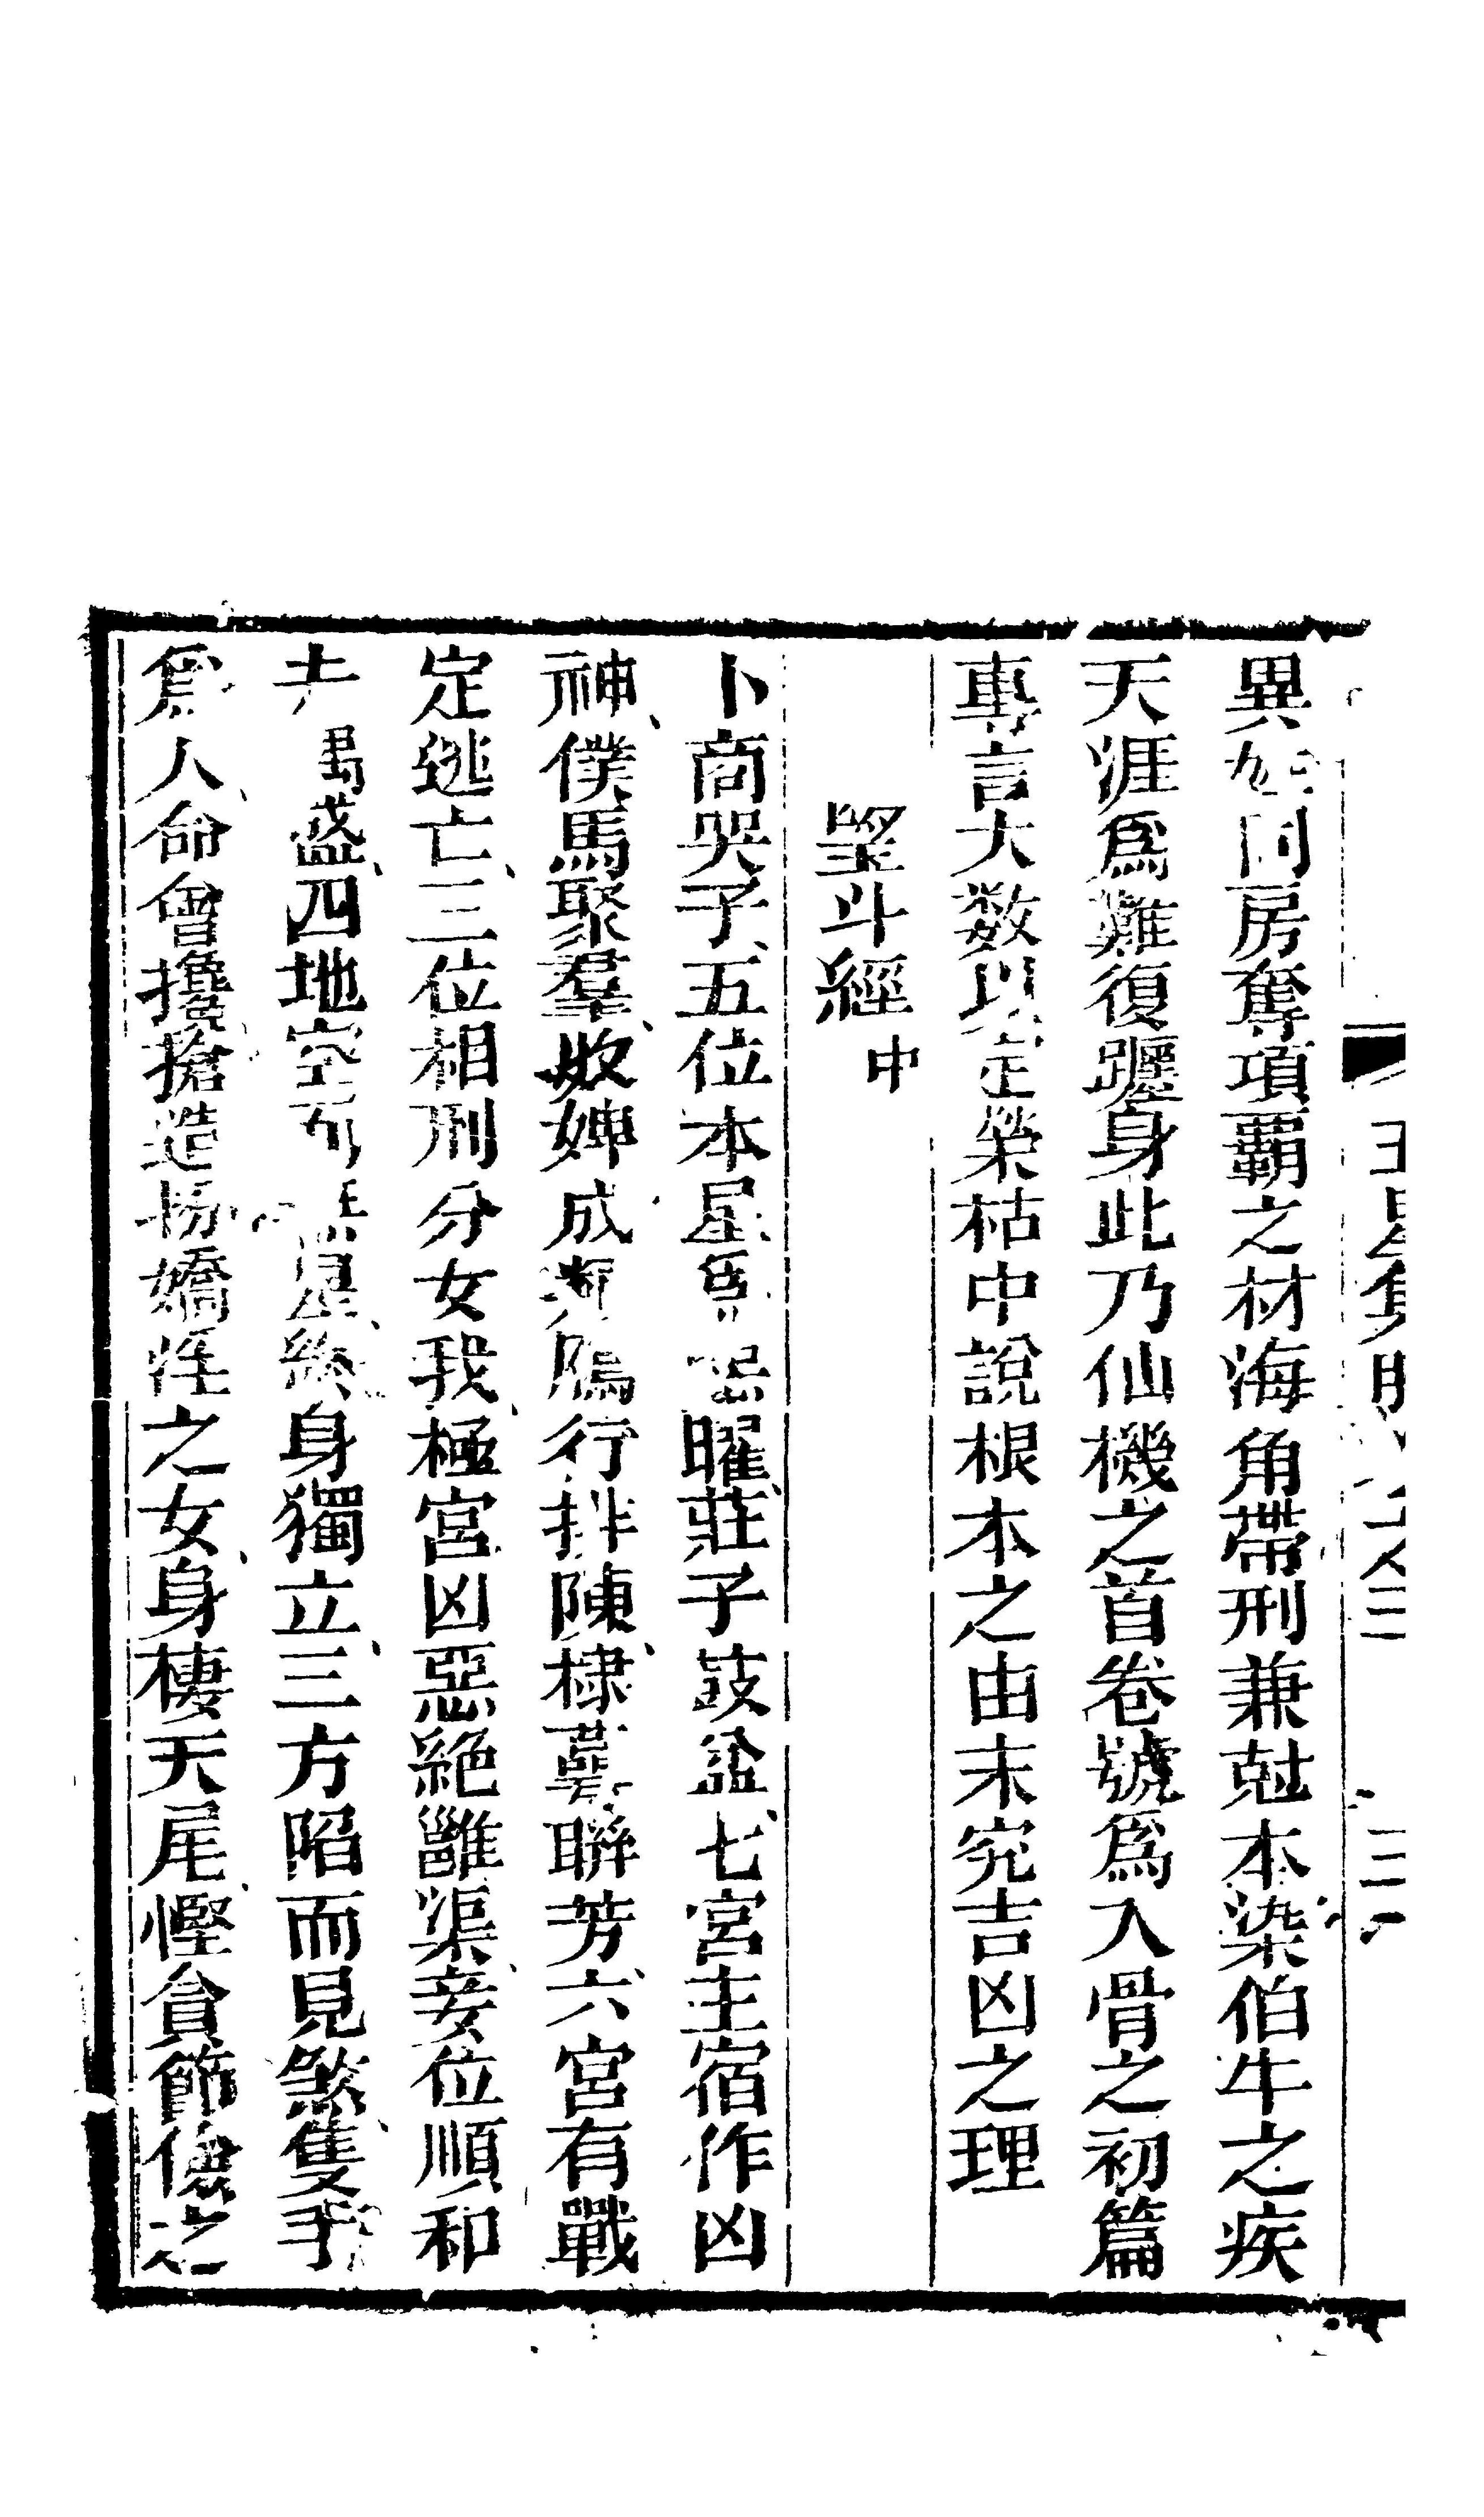 異 房奪項覇之材海角帶刑兼尅本染伯牛之疾
天涯爲難復躔身此乃仙機之首卷號爲入骨之初篇
專言大数以定榮枯中說根本之由末究吉凶之理
望斗經中
卜商哭子五位本星 曜莊子鼓盆七宮主宿作凶
神僕馬聚羣奴婢成 行排陳棣萼聯芳六宮有戰
定逃亡三位相刑分女我極宮凶惡絶雝渠妾位順和
四地空 星終身獨立三方陷而見煞隻手
爲人命會攙搶造物嬌性之女身棲天尾慳貪節儉之